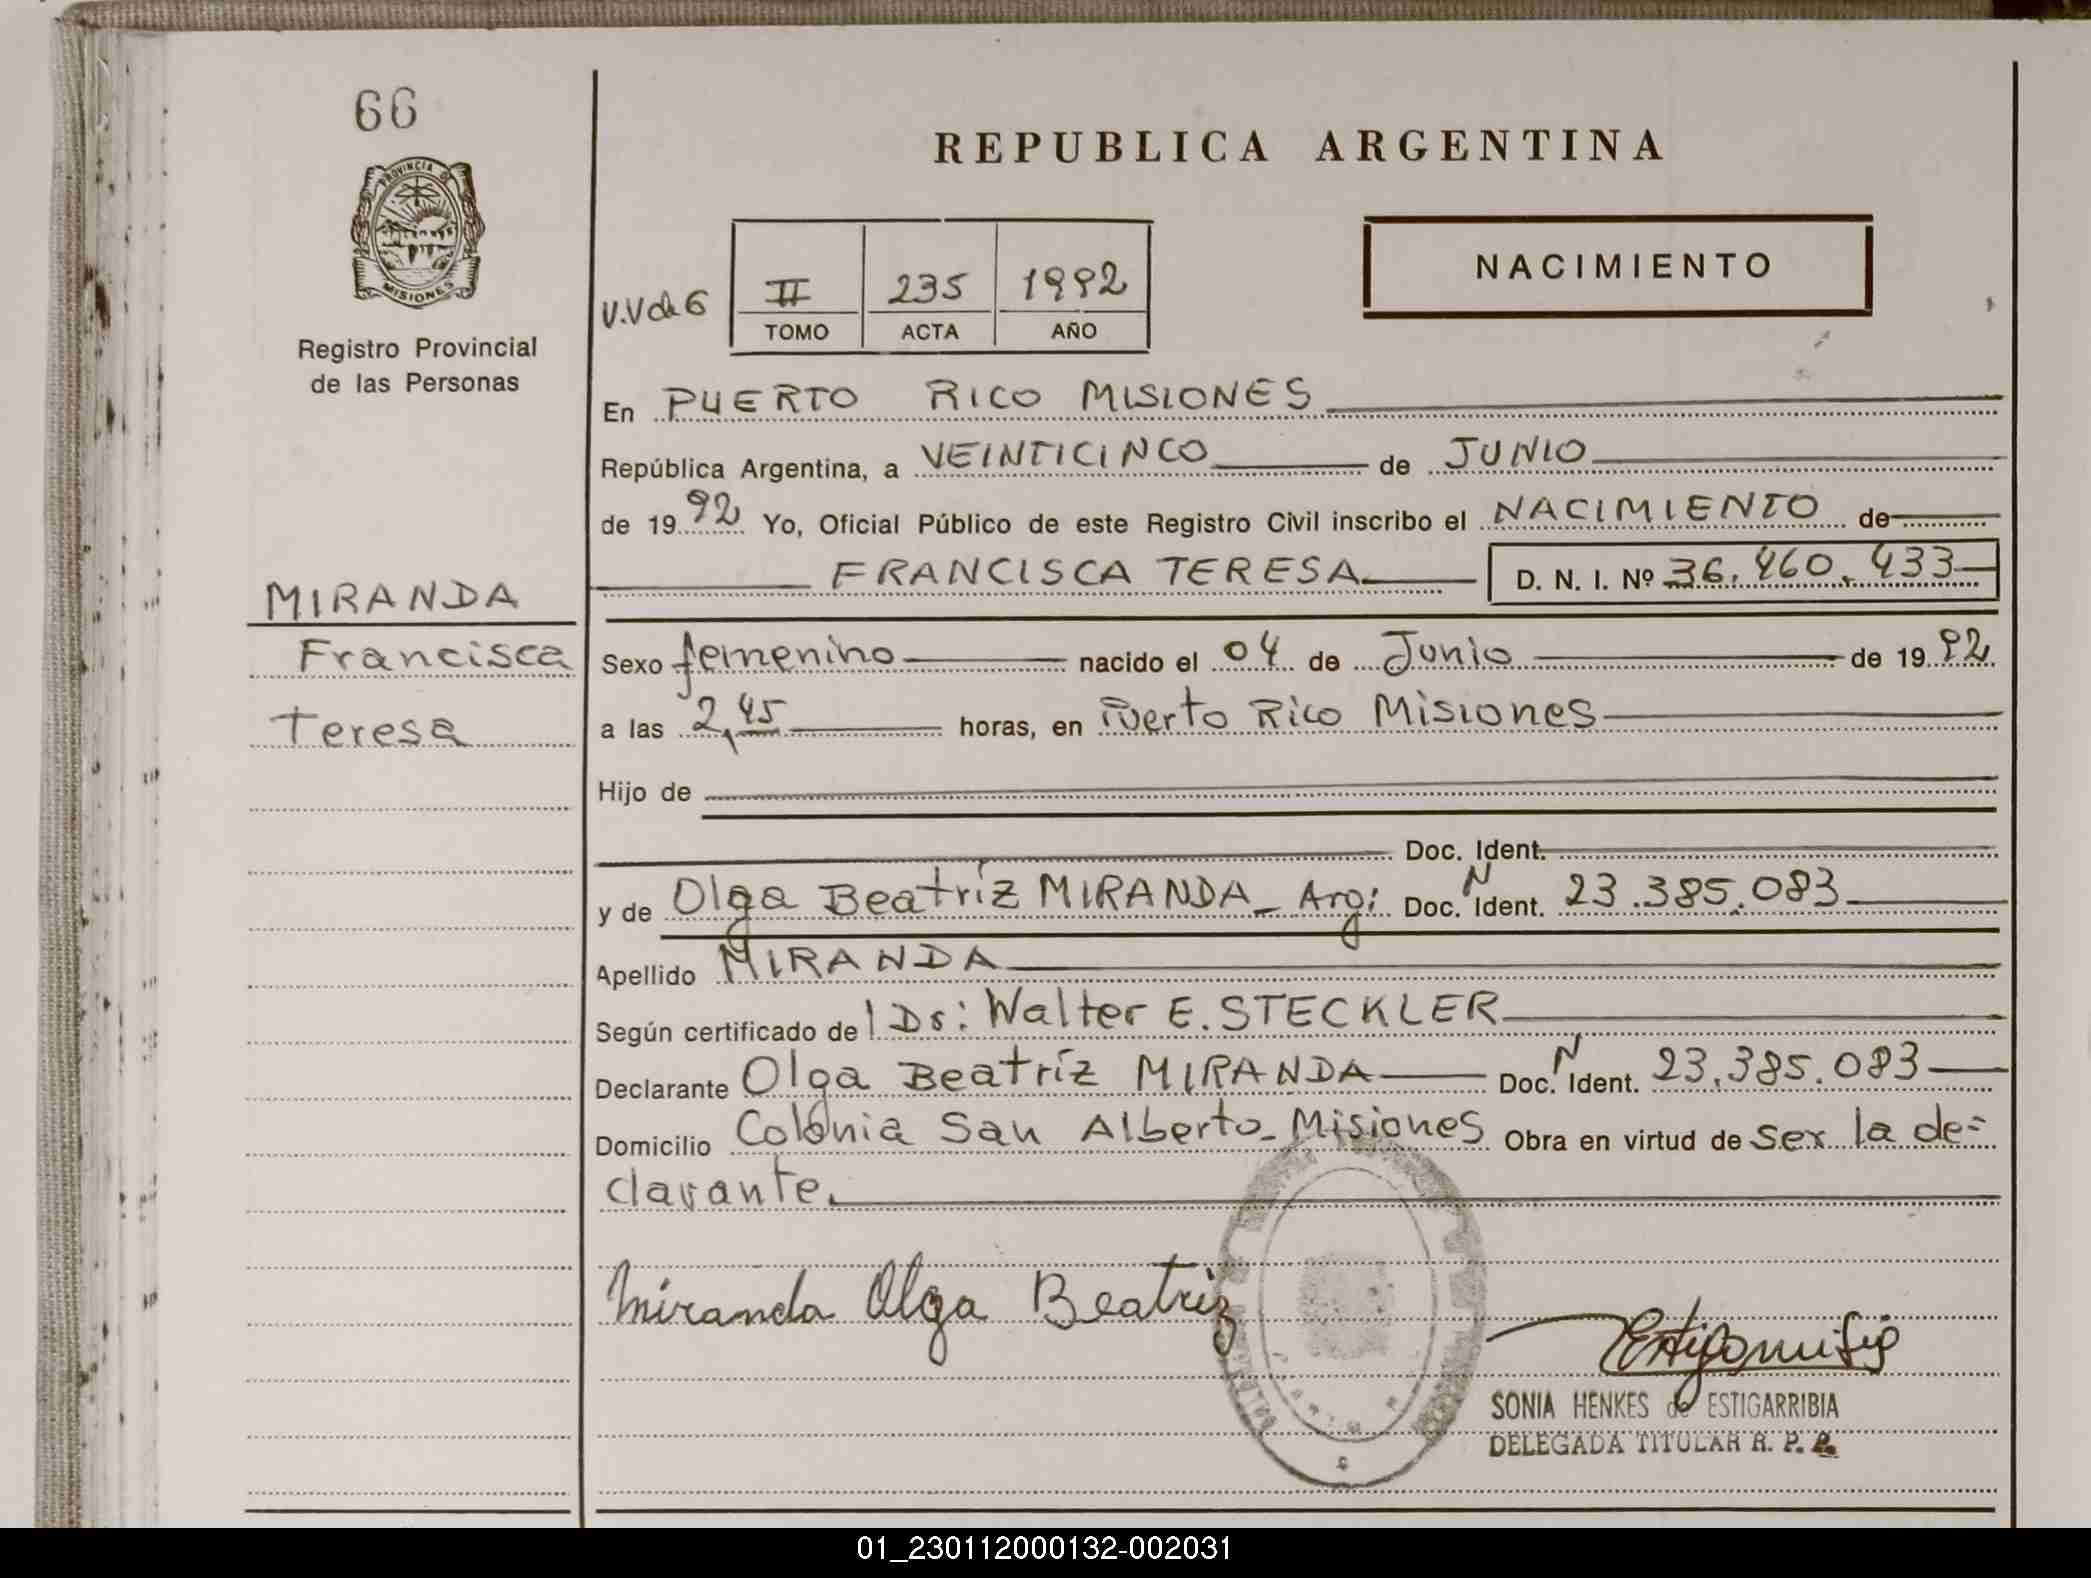 66
PROVINCIA DE
MISIONES
Registro Provincial
de las Personas
MIRANDA
Francisca
Teresa
REPUBLICA ARGENTINA
V.V de 6
II 235 1992
TOMO ACTA AÑO
NACIMIENTO
En PUERTO RICO MISIONES
República Argentina, a VEINTICINCO de JUNIO
de 1992 Yo, Oficial Público de este Registro Civil inscribo el NACIMIENTO de
FRANCISCA TERESA D. N. I. Nº 36.460.433
Sexo femenino nacido el 04 de Junio de 1992
a las 2,45 horas, en Puerto Rico Misiones
Hijo de
Doc. Ident.
y de Olga Beatríz MIRANDA - Arg: Doc. N Ident. 23.385.083
Apellido MIRANDA
Según certificado de l Dr: Walter E. STECKLER
Declarante Olga Beatríz MIRANDA Doc. N Ident. 23.385.083
Domicilio Colonia San Alberto - Misiones Obra en virtud de ser la de=
clarante.
Miranda Olga Beatriz
SONIA HENKES de ESTIGARRIBIA
DELEGADA TITULAR R. P. P.
01_230112000132-002031